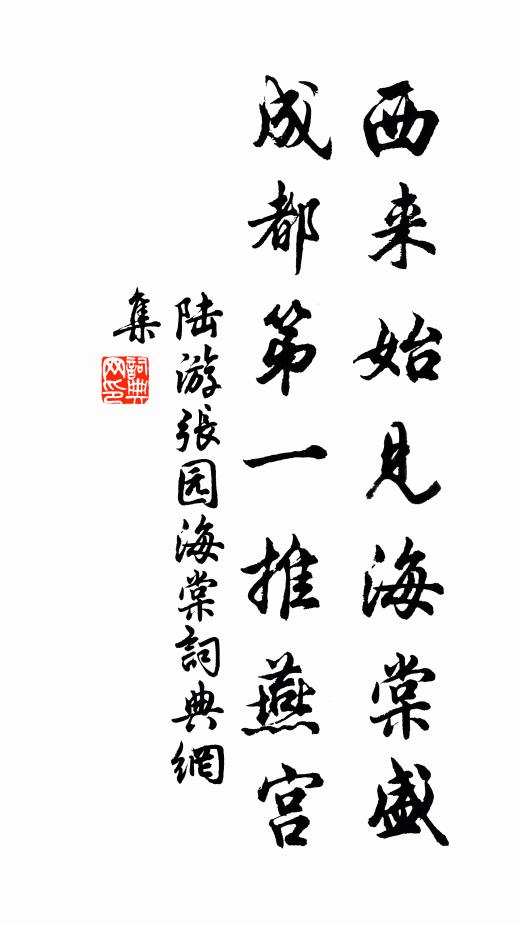 西来始見海棠盛
成都第一推燕宫
陆游張园海棠詞典網
集
詞典
网印